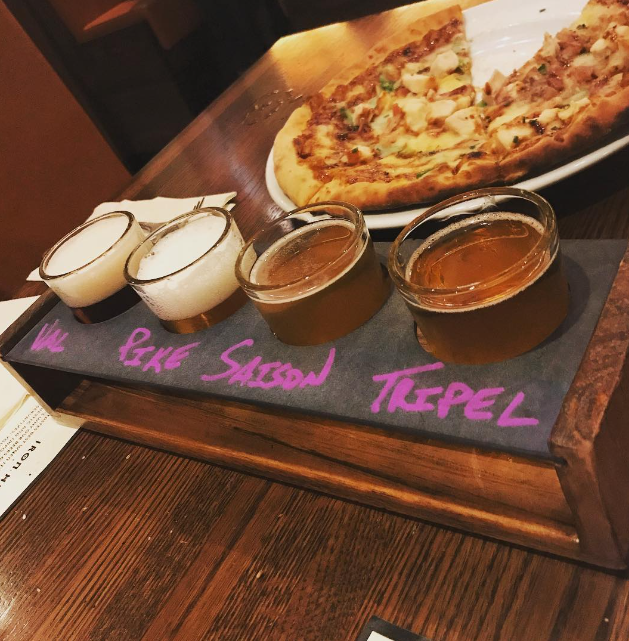 VAL PIKE SAISON TRIPEL
IRON H